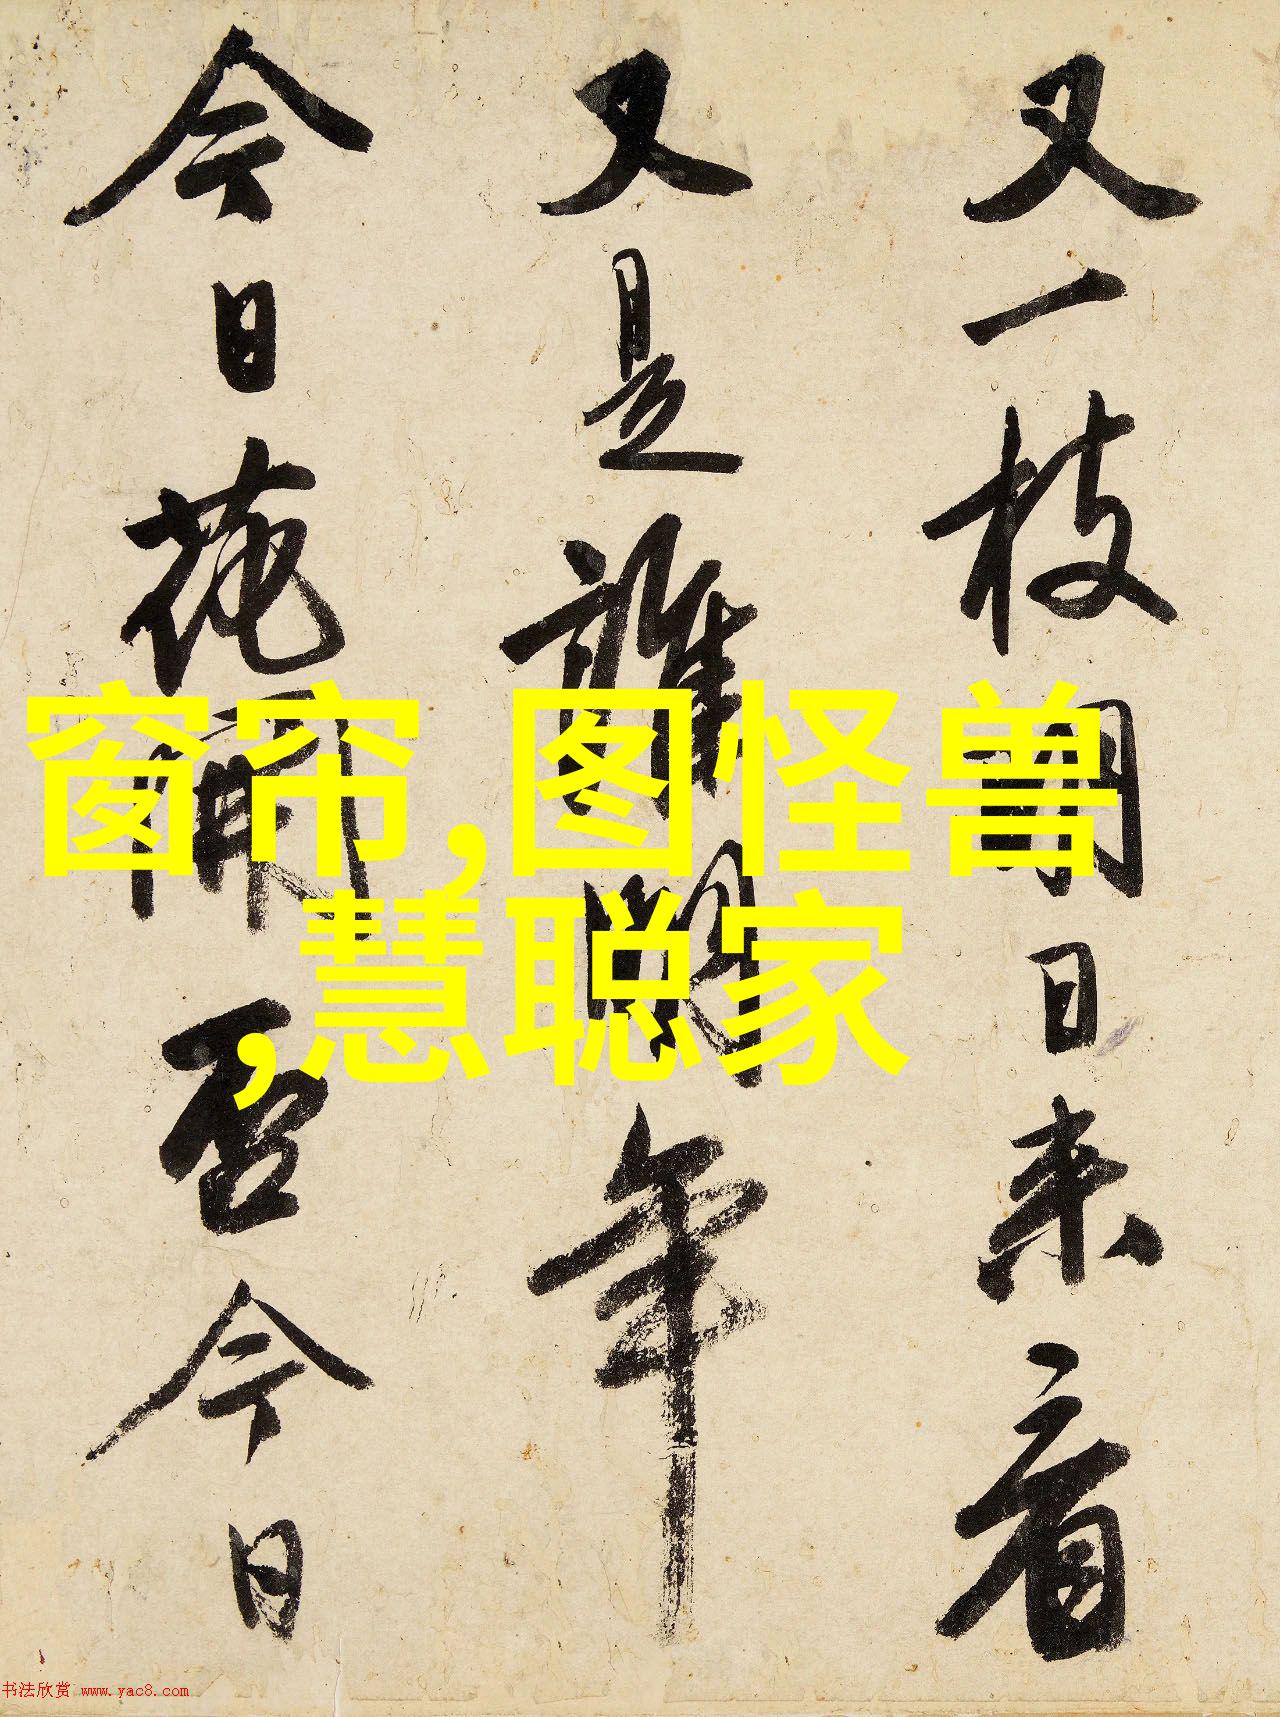 又一枝明日来看
又是誰明年
今日花開否今日
窗帘,图怪兽
,慧聪家
书法欣赏 www.yac8.com